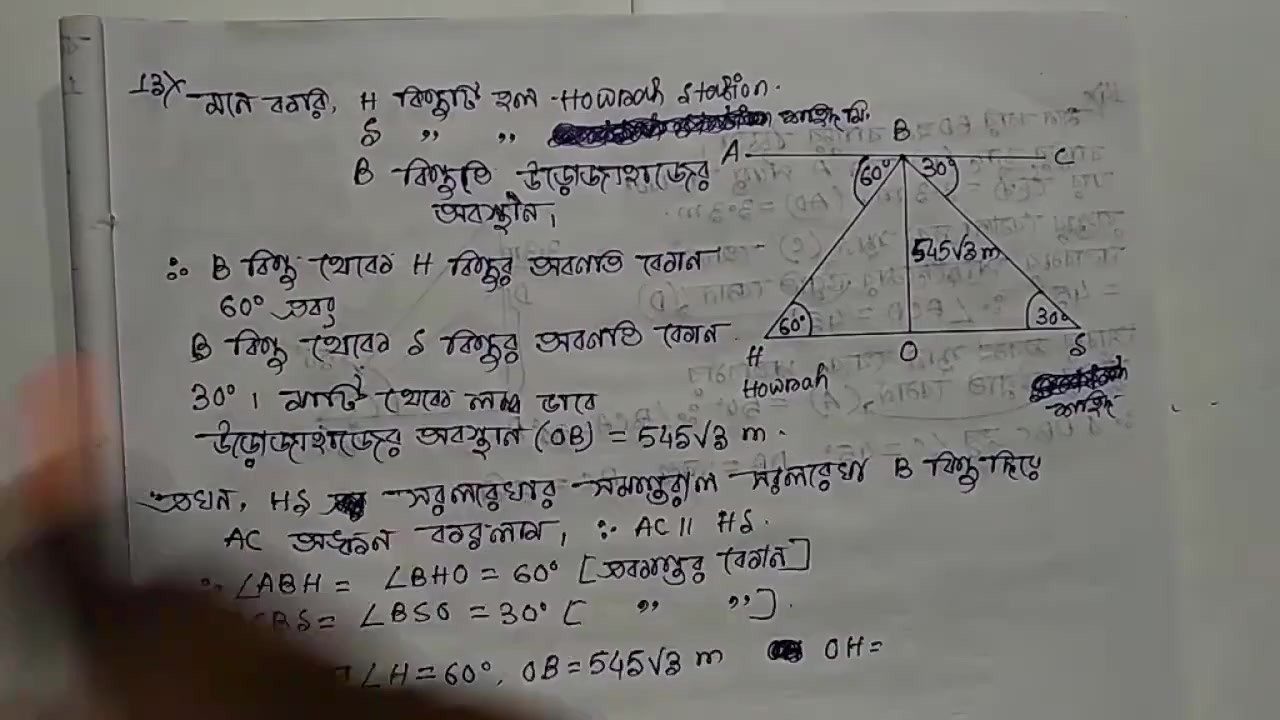 13)
মনে করি, H বিন্দুটি হল Howrah Station.
S " " শহিদ মি.
B বিন্দুটি উড়োজাহাজের
অবস্থান,
∴ B বিন্দু থেকে H বিন্দুর অবনতি কোন
60° এবং
B বিন্দু থেকে S বিন্দুর অবনতি কোন
30°। মাটি থেকে লম্ব ভাবে
উড়োজাহাজের অবস্থান (OB) = 545√3 m.
এখন, HS সরলরেখার সমান্তরাল সরলরেখা B বিন্দু দিয়ে
AC অঙ্কন করলাম, ∴ AC || HS.
∴ ∠ABH = ∠BHO = 60° [একান্তর কোন]
CBS = ∠BSO = 30° [ " " ].
∠H = 60°, OB = 545√3 m OH =
A B C
60° 30°
545√3 m
60° 30°
H O S
Howrah শহিদ